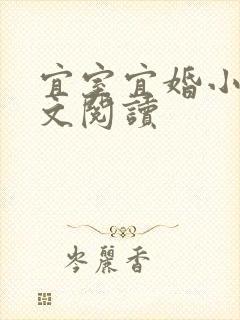 宜室宜婚小
文閱讀
岑麗香